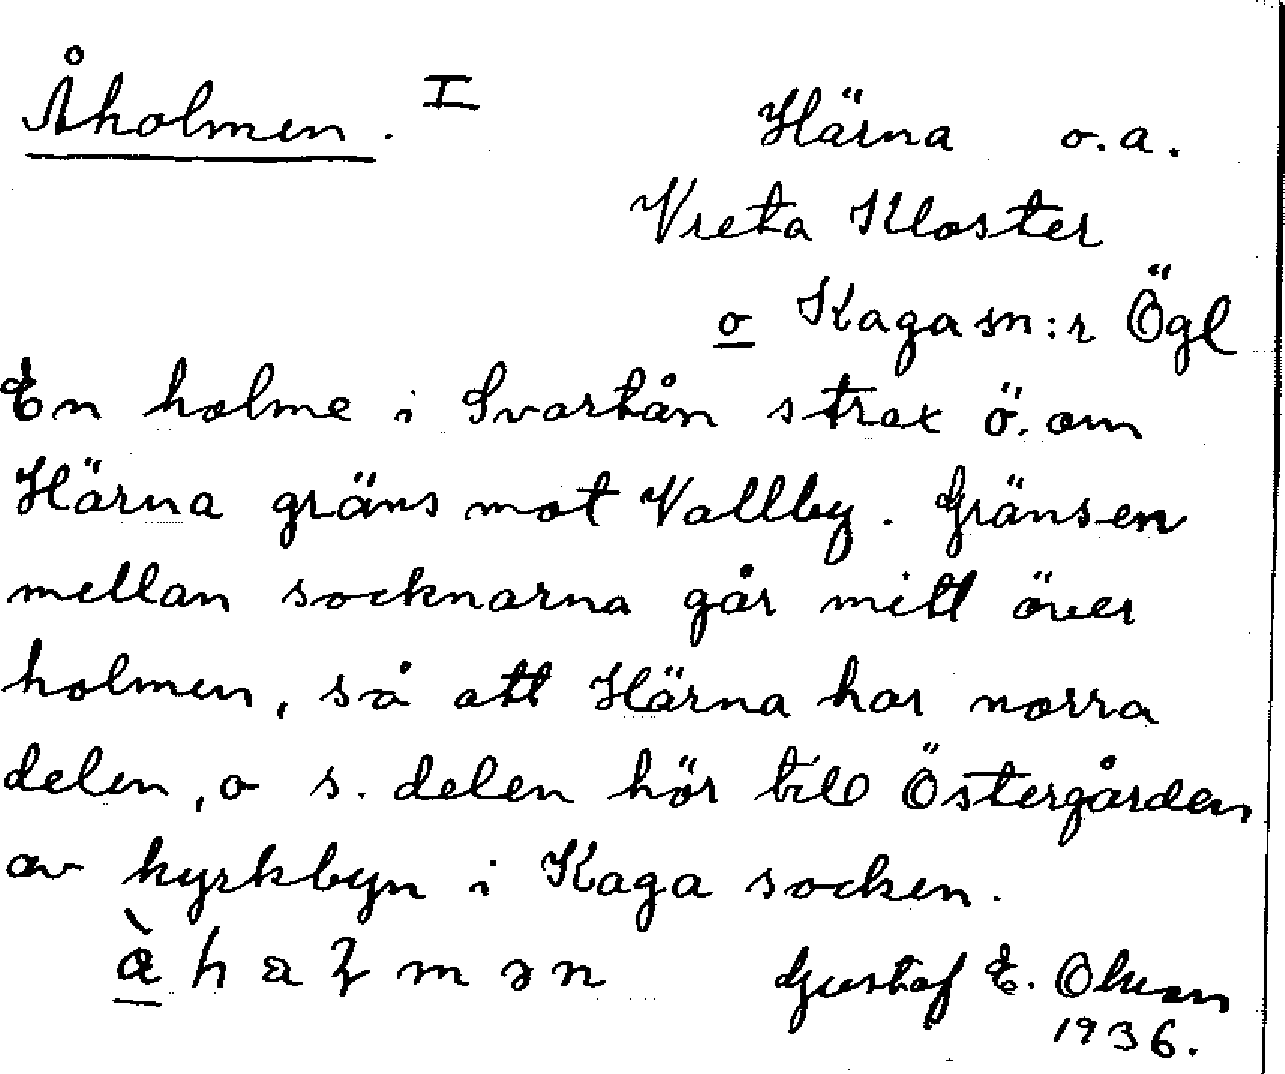 Åholmen. I
Härna o.a.
Vreta Kloster
o Kaga sn:r Ögl
En holme i Svartån strax ö. om
Härna gräns mot Vallby. Gränsen
mellan socknarna går mitt över
holmen, så att Härna har norra
delen, o s. delen hör till Östergården
av kyrkbyn i Kaga socken.
Gustaf E. Olsson
1936.